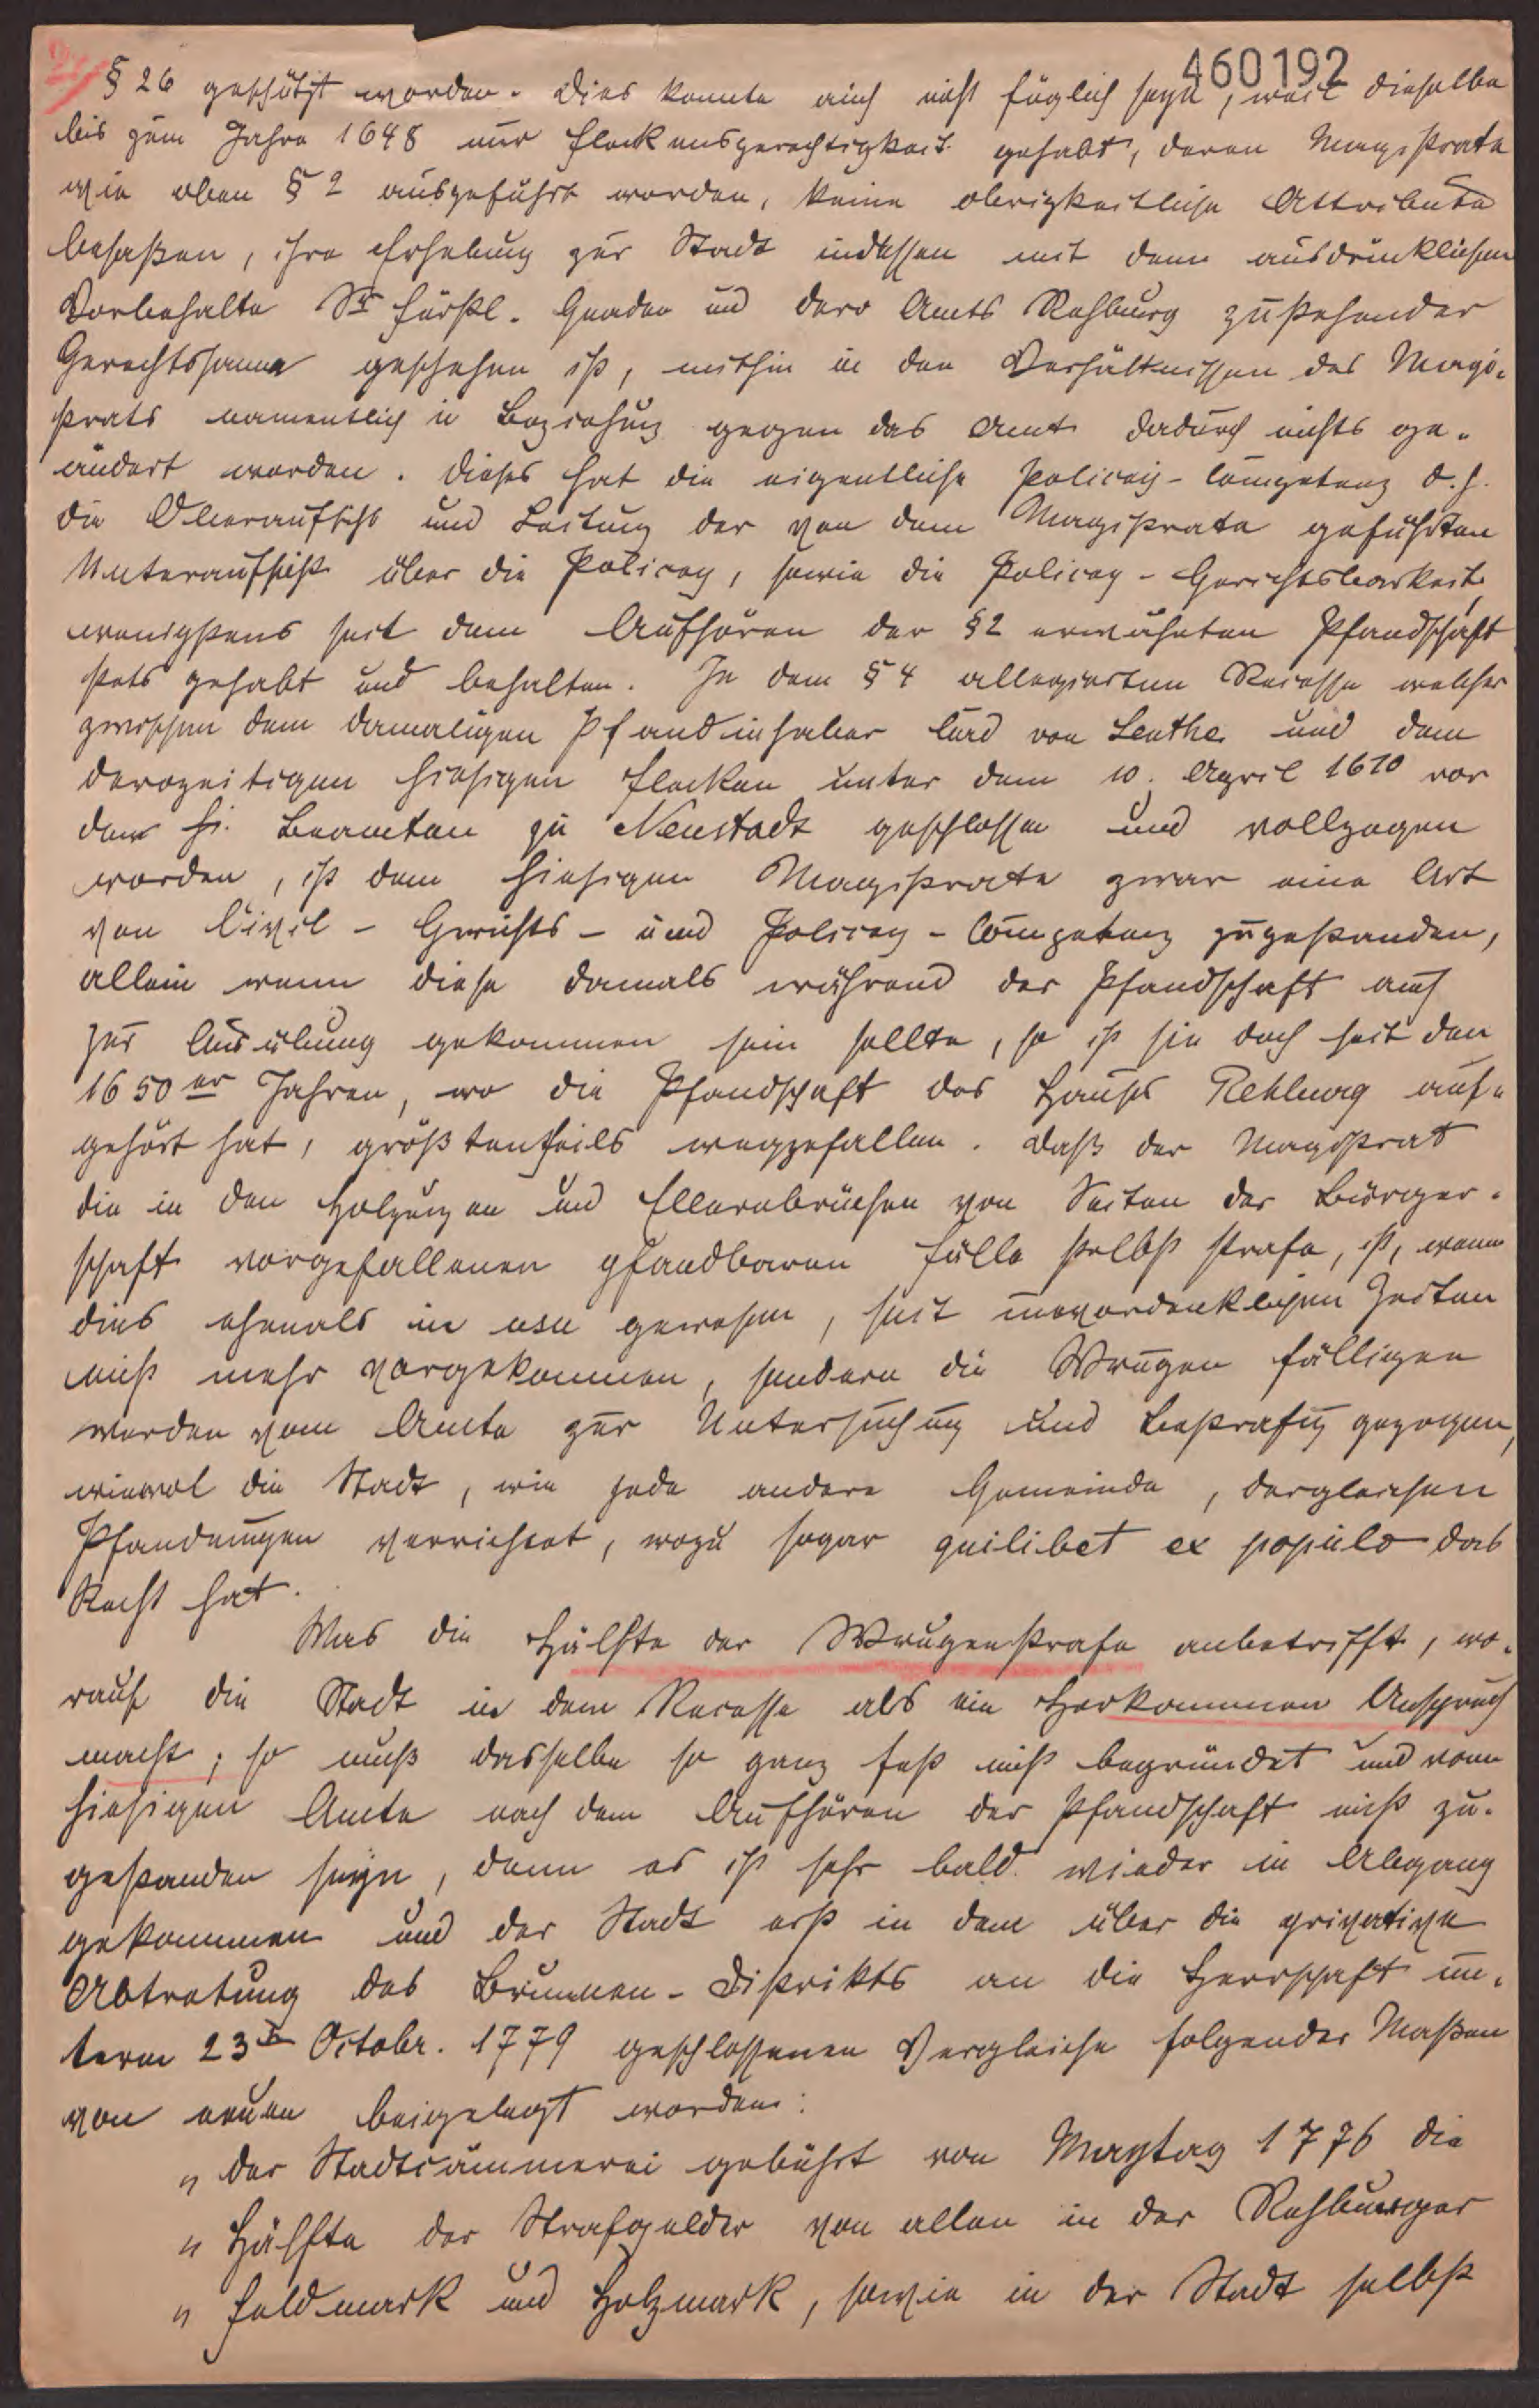 460192
§ 26 geschützt worden. Dies konnte auch nicht füglich seyn, weil dieselbe
bis zum Jahre 1648 nur Fleckensgerechtigkeit gehabt, deren Magistrate
wie oben § 2 ausgeführt worden, keine obrigkeitliche Attribute
besaßen, ihre Erhebung zur Stadt indessen mit dem ausdrücklichen
Vorbehalte Sr Fürstl. Gnaden und dero Amts Rehburg zustehender
Gerechtssame geschehen ist, mithin in den Verhältnissen des Magi-
strats namentlich in Beziehung gegen das Amt dadurch nichts ge-
ändert worden. Dieses hat die eigentliche Policey-Competenz d. h.
die Oberaufsicht und Leitung der von dem Magistrate geführten
Unteraufsicht über die Policey, sowie die Policey-Gerichtsbarkeit,
wenigstens seit dem Aufhören der § 2 erwähnten Pfandschaft
stets gehabt und behalten. In dem § 4 allegierten Recesse welcher
zwischen dem damaligen Pfandinhaber Curd von Lenthe und dem
derozeitigen hiesigen Flecken unter dem 10. April 1610 vor
den hi. Beamten zu Neustadt geschlossen und vollzogen
worden, ist dem hiesigen Magistrate zwar eine Art
von Civil- Gerichts- und Policey-Competenz zugestanden,
allein wenn diese damals während der Pfandschaft auch
zur Ausübung gekommen sein sollte, so ist sie doch seit den
1650er Jahren, wo die Pfandschaft des Hauses Rehburg auf-
gehört hat, größtentheils weggefallen. Daß der Magistrat
die in den Holzungen und Ellernbrüchen von Seiten der Bürger-
schaft vorgefallenen pfandbaren Fälle selbst strafe, ist, wenn
dies ehemals in usu gewesen, seit unvordenklichen Zeiten
nicht mehr vorgekommen, sondern die Wrugen fälligen
werden vom Amte zur Untersuchung und Bestrafung gezogen,
wiewol die Stadt, wie jede andere Gemeinde, dergleichen
Pfandungen verrichtet, wozu sogar quilibet ex populo das
Recht hat.
Was die Hälfte der Wrugenstrafe anbetrifft, wo-
rauf die Stadt in dem Recesse als ein Herkommen Anspruch
macht; so muß dasselbe so ganz fest nicht begründet und vom
hiesigen Amte nach dem Aufhören der Pfandschaft nicht zu-
gestanden seyn, denn es ist sehr bald wieder in Abgang
gekommen und der Stadt erst in dem über die privative
Abtretung des Brunnen-Distrikts an die Herrschaft un-
term 23ten Octobr. 1779 geschlossenen Vergleiche folgender Maßen
von neuen beigelegt worden:
„ der Stadtcämmerei gebührt von Maytag 1776 die
„ Hälfte der Strafgelder von allen in der Rehburger
„ Feldmark und Holzmark, sowie in der Stadt selbst